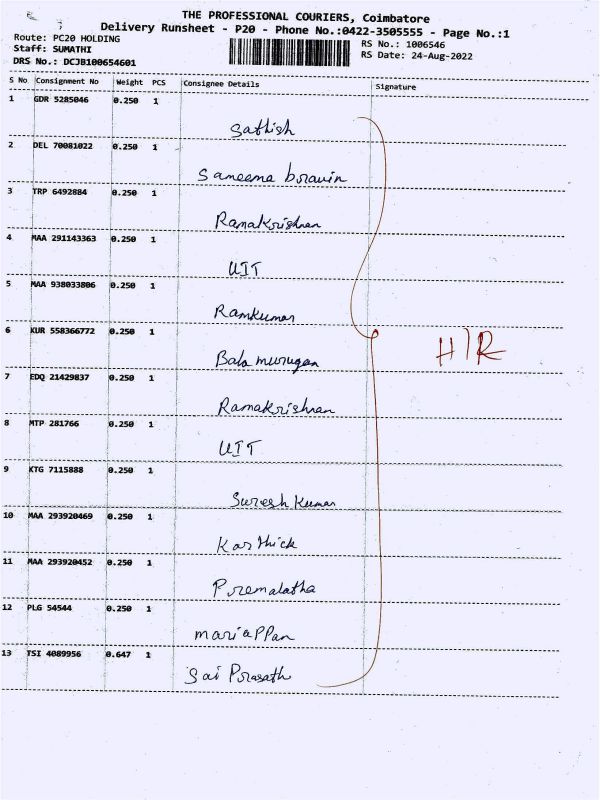 THE PROFESSIONAL COURIERS, Coimbatore
Delivery Runsheet - P20 - Phone No.:0422-3505555 - Page No.:1
Route: PC20 HOLDING
Staff: SUMATHI
DRS No.: DCJB100654601
RS No.: 1006546
RS Date: 24-Aug-2022
S No Consignment No Weight PCS Consignee Details Signature
1 GDR 5285046 0.250 1
Sathish
2 DEL 70081022 0.250 1
Sameema bravin
3 TRP 6492884 0.250 1
Ramakrishnan
4 MAA 291143363 0.250 1
UIT
5 MAA 938033806 0.250 1
Ramkumar
6 KUR 558366772 0.250 1
Bala murugan
H/R
7 EDQ 21429837 0.250 1
Ramakrishnan
8 MTP 281766 0.250 1
UIT
9 KTG 7115888 0.250 1
Suresh Kumar
10 MAA 293920469 0.250 1
Karthick
11 MAA 293920452 0.250 1
Premalatha
12 PLG 54544 0.250 1
mariappan
13 TSI 4089956 0.647 1
Sai Prasath